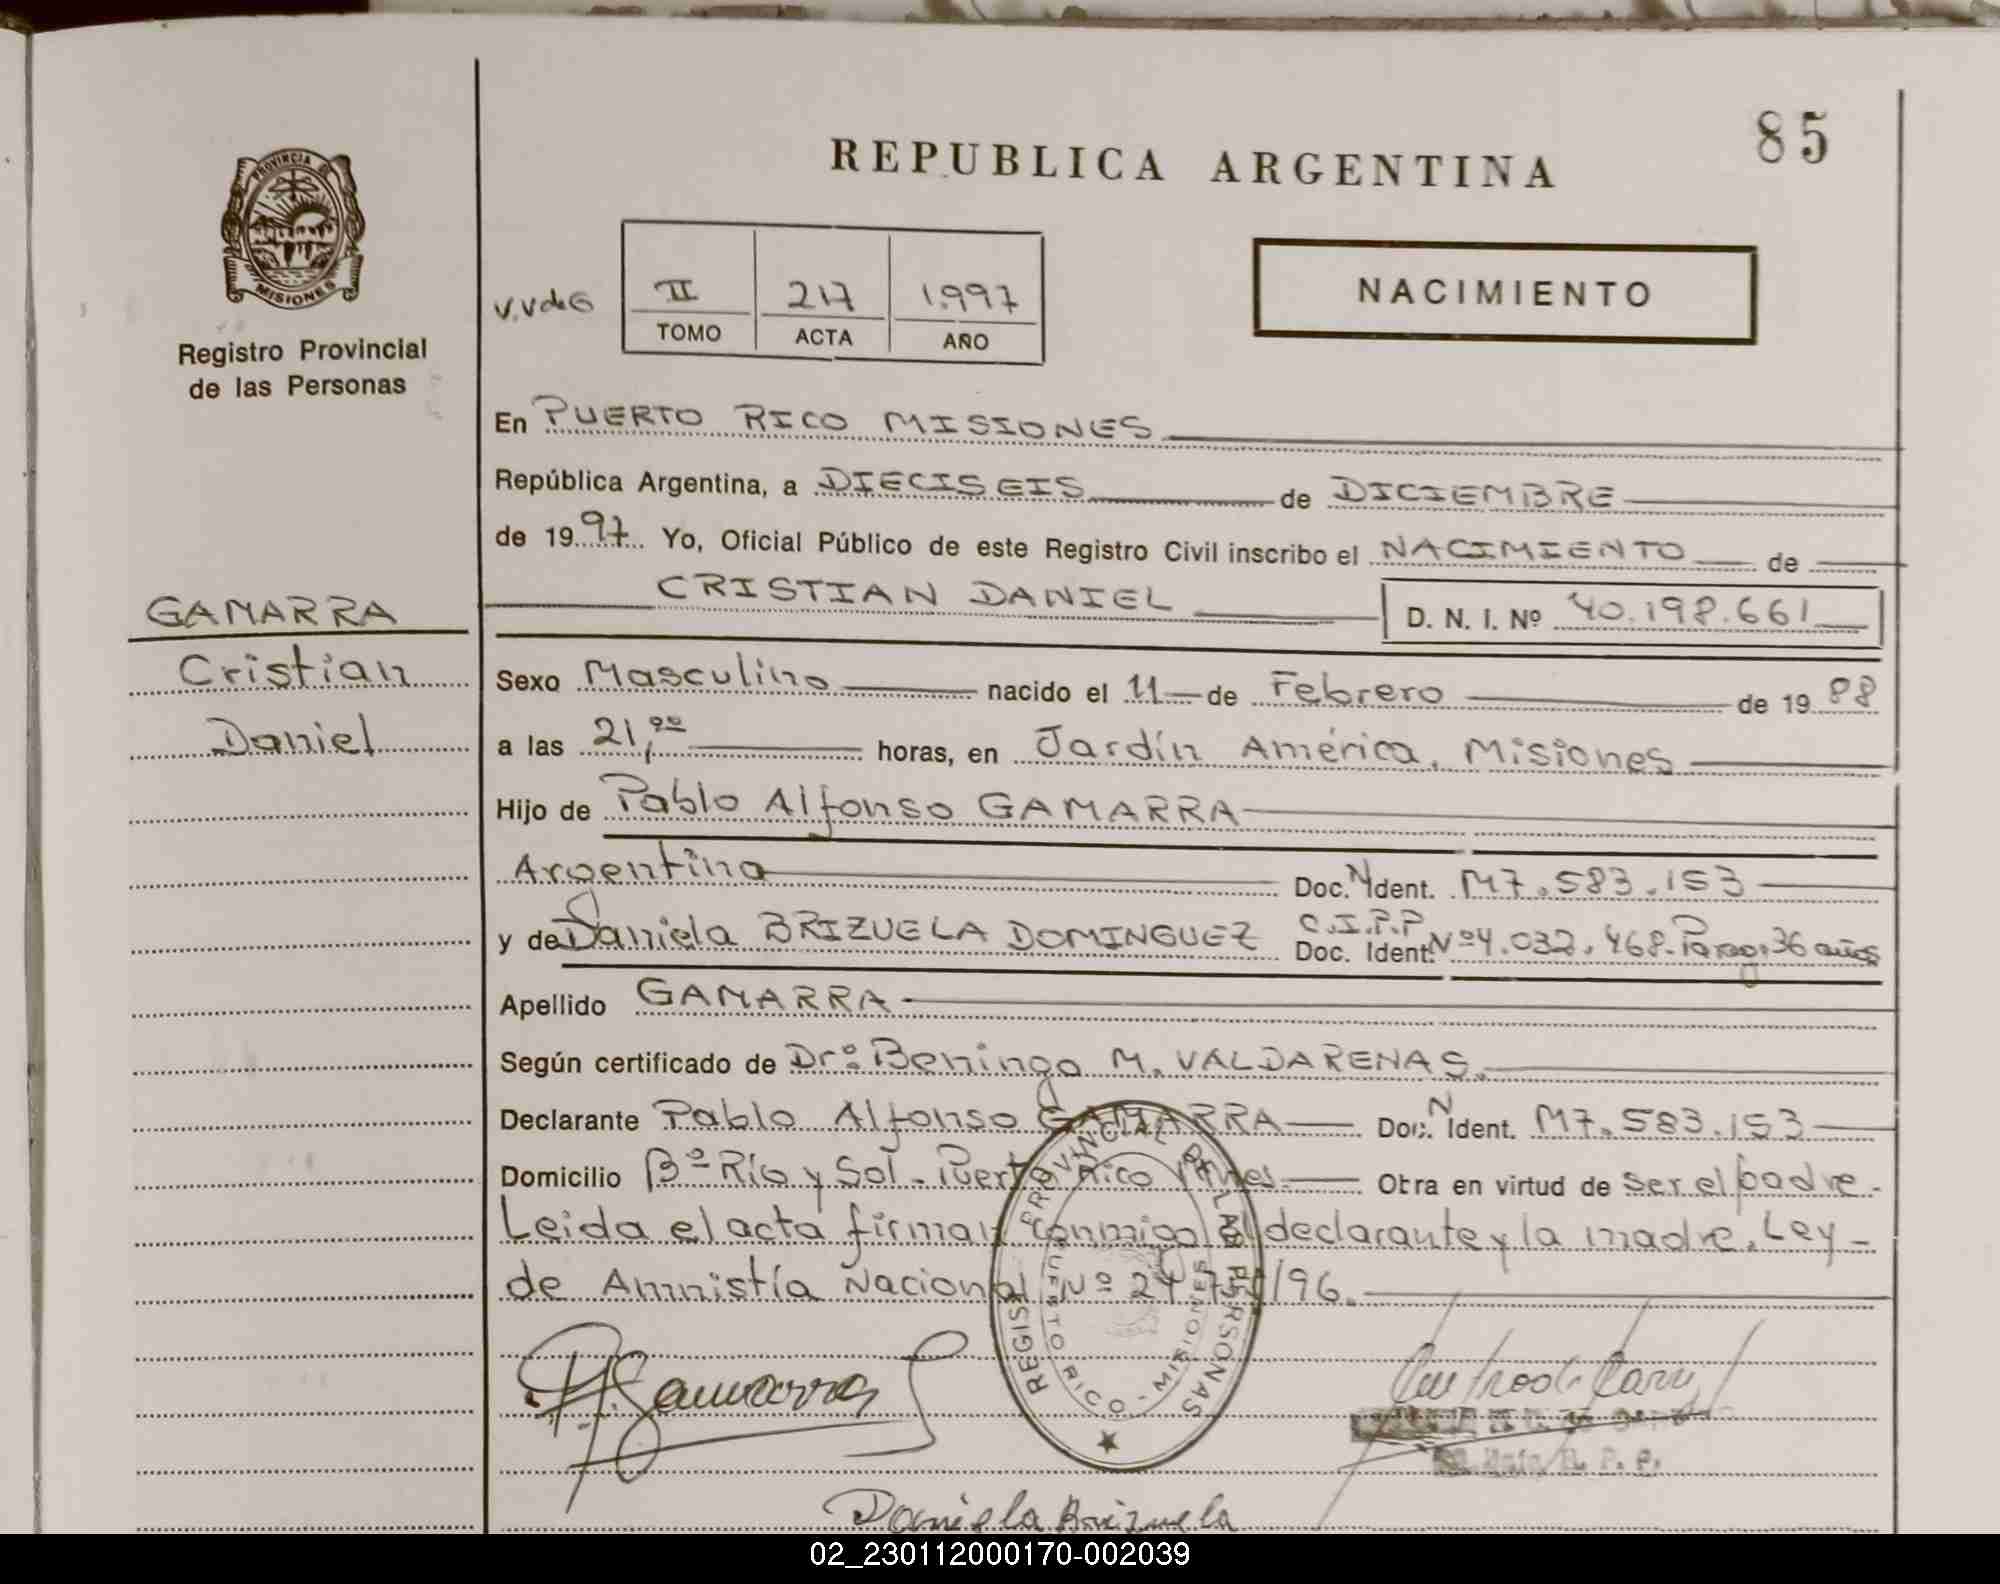 85
REPUBLICA ARGENTINA
PROVINCIA DE
MISIONES
Registro Provincial
de las Personas
V.V de G
II 217 1.997
TOMO ACTA AÑO
NACIMIENTO
En PUERTO RICO MISIONES
República Argentina, a DIECISEIS de DICIEMBRE
de 1997 Yo, Oficial Público de este Registro Civil inscribo el NACIMIENTO de
CRISTIAN DANIEL D. N. I. Nº 40.198.661
GAMARRA
Cristian
Daniel
Sexo Masculino nacido el 11 de Febrero de 1988
a las 21,00 horas, en Jardín América, Misiones
Hijo de Pablo Alfonso GAMARRA
Argentina Doc. N Ident. M7.583.153
y de Daniela BRIZUELA DOMINGUEZ C.I.P.P Doc. Ident. Nº 4.032.468. Parag. 36 años
Apellido GAMARRA
Según certificado de Dr: Beningo M. VALDARENAS.
Declarante Pablo Alfonso GAMARRA Doc. N Ident. M7.583.153
Domicilio Bº Río y Sol - Puerto Rico Mnes. Otra en virtud de ser el padre.
Leida el acta firman conmigo el declarante y la madre. Ley-
de Amnistía Nacional Nº 24.755/96.
REGISTRO PROVINCIAL DE LAS PERSONAS
PUERTO RICO - MISIONES
P A Gamarra
Daniela Brizuela
02_230112000170-002039